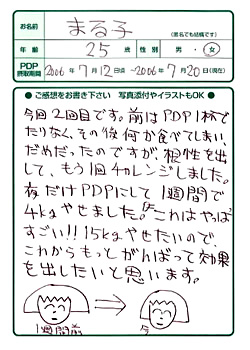 お名前 まる子
(匿名でも結構です)
年齢 25 歳 性別 男・女
PDP摂取期間 2006年7月12日頃~2006年7月20日(現在)
●ご感想をお書き下さい 写真添付やイラストもOK●
今回2回目です。前はPDP1杯で
たりなく、その後何か食べてしまい、
だめだったのですが、根性を出
して、もう1回チャレンジしました。
夜だけPDPにして1週間で
4kgやせました。これはやっぱ
すごい!!15kgやせたいので、
これからもっとがんばって効果
を出したいと思います。
1週間前
今